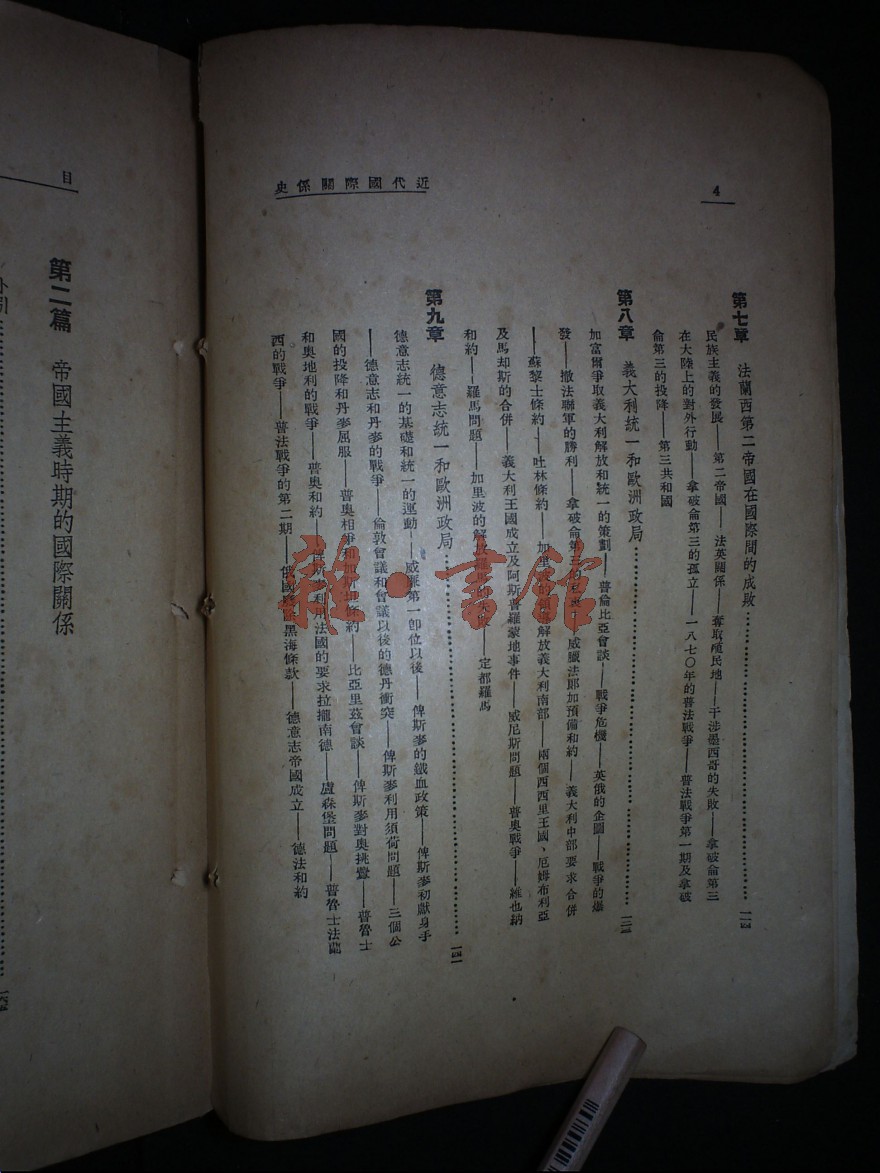 近代國際關係史
4
第七章 法蘭西第二帝國在國際間的成敗
民族主義的發展——第二帝國——法英關係——奪取殖民地——干涉墨西哥的失敗——拿破崙第三
在大陸上的對外行動——拿破崙第三的孤立——一八七〇年的普法戰爭——普法戰爭第一期及拿破
崙第三的投降——第三共和國
第八章 義大利統一和歐洲政局
加富爾爭取義大利解放和統一的策劃——普倫比亞會談——戰爭危機——英俄的企圖——戰爭的爆
發——撒法聯軍的勝利——拿破崙第三的——威臘法耶加預備和約——義大利中部要求合併
——蘇黎士條約——吐林條約——加里波的解放義大利南部——兩個西西里王國、厄姆布利亞
及馬却斯的合併——義大利王國成立及阿斯普羅蒙地事件——威尼斯問題——普奧戰爭——維也納
和約——羅馬問題——加里波的解放羅馬的失敗——定都羅馬
第九章 德意志統一和歐洲政局 一四一
德意志統一的基礎和統一的運動——威廉第一卽位以後——俾斯麥的鐵血政策——俾斯麥初獻身手
——德意志和丹麥的戰爭——倫敦會議和會議以後的德丹衝突——俾斯麥利用須荷問題——三個公
國的投降和丹麥屈服——普奧相爭和加斯坦條約——比亞里茲會談——俾斯麥對奧挑釁——普魯士
和奧地利的戰爭——普奧和約——俾斯麥利用法國的要求拉攏南德——盧森堡問題——普魯士法蘭
西的戰爭——普法戰爭的第二期——俄國廢除黑海條款——德意志帝國成立——德法和約
目
第二篇 帝國主義時期的國際關係
雜·書舘